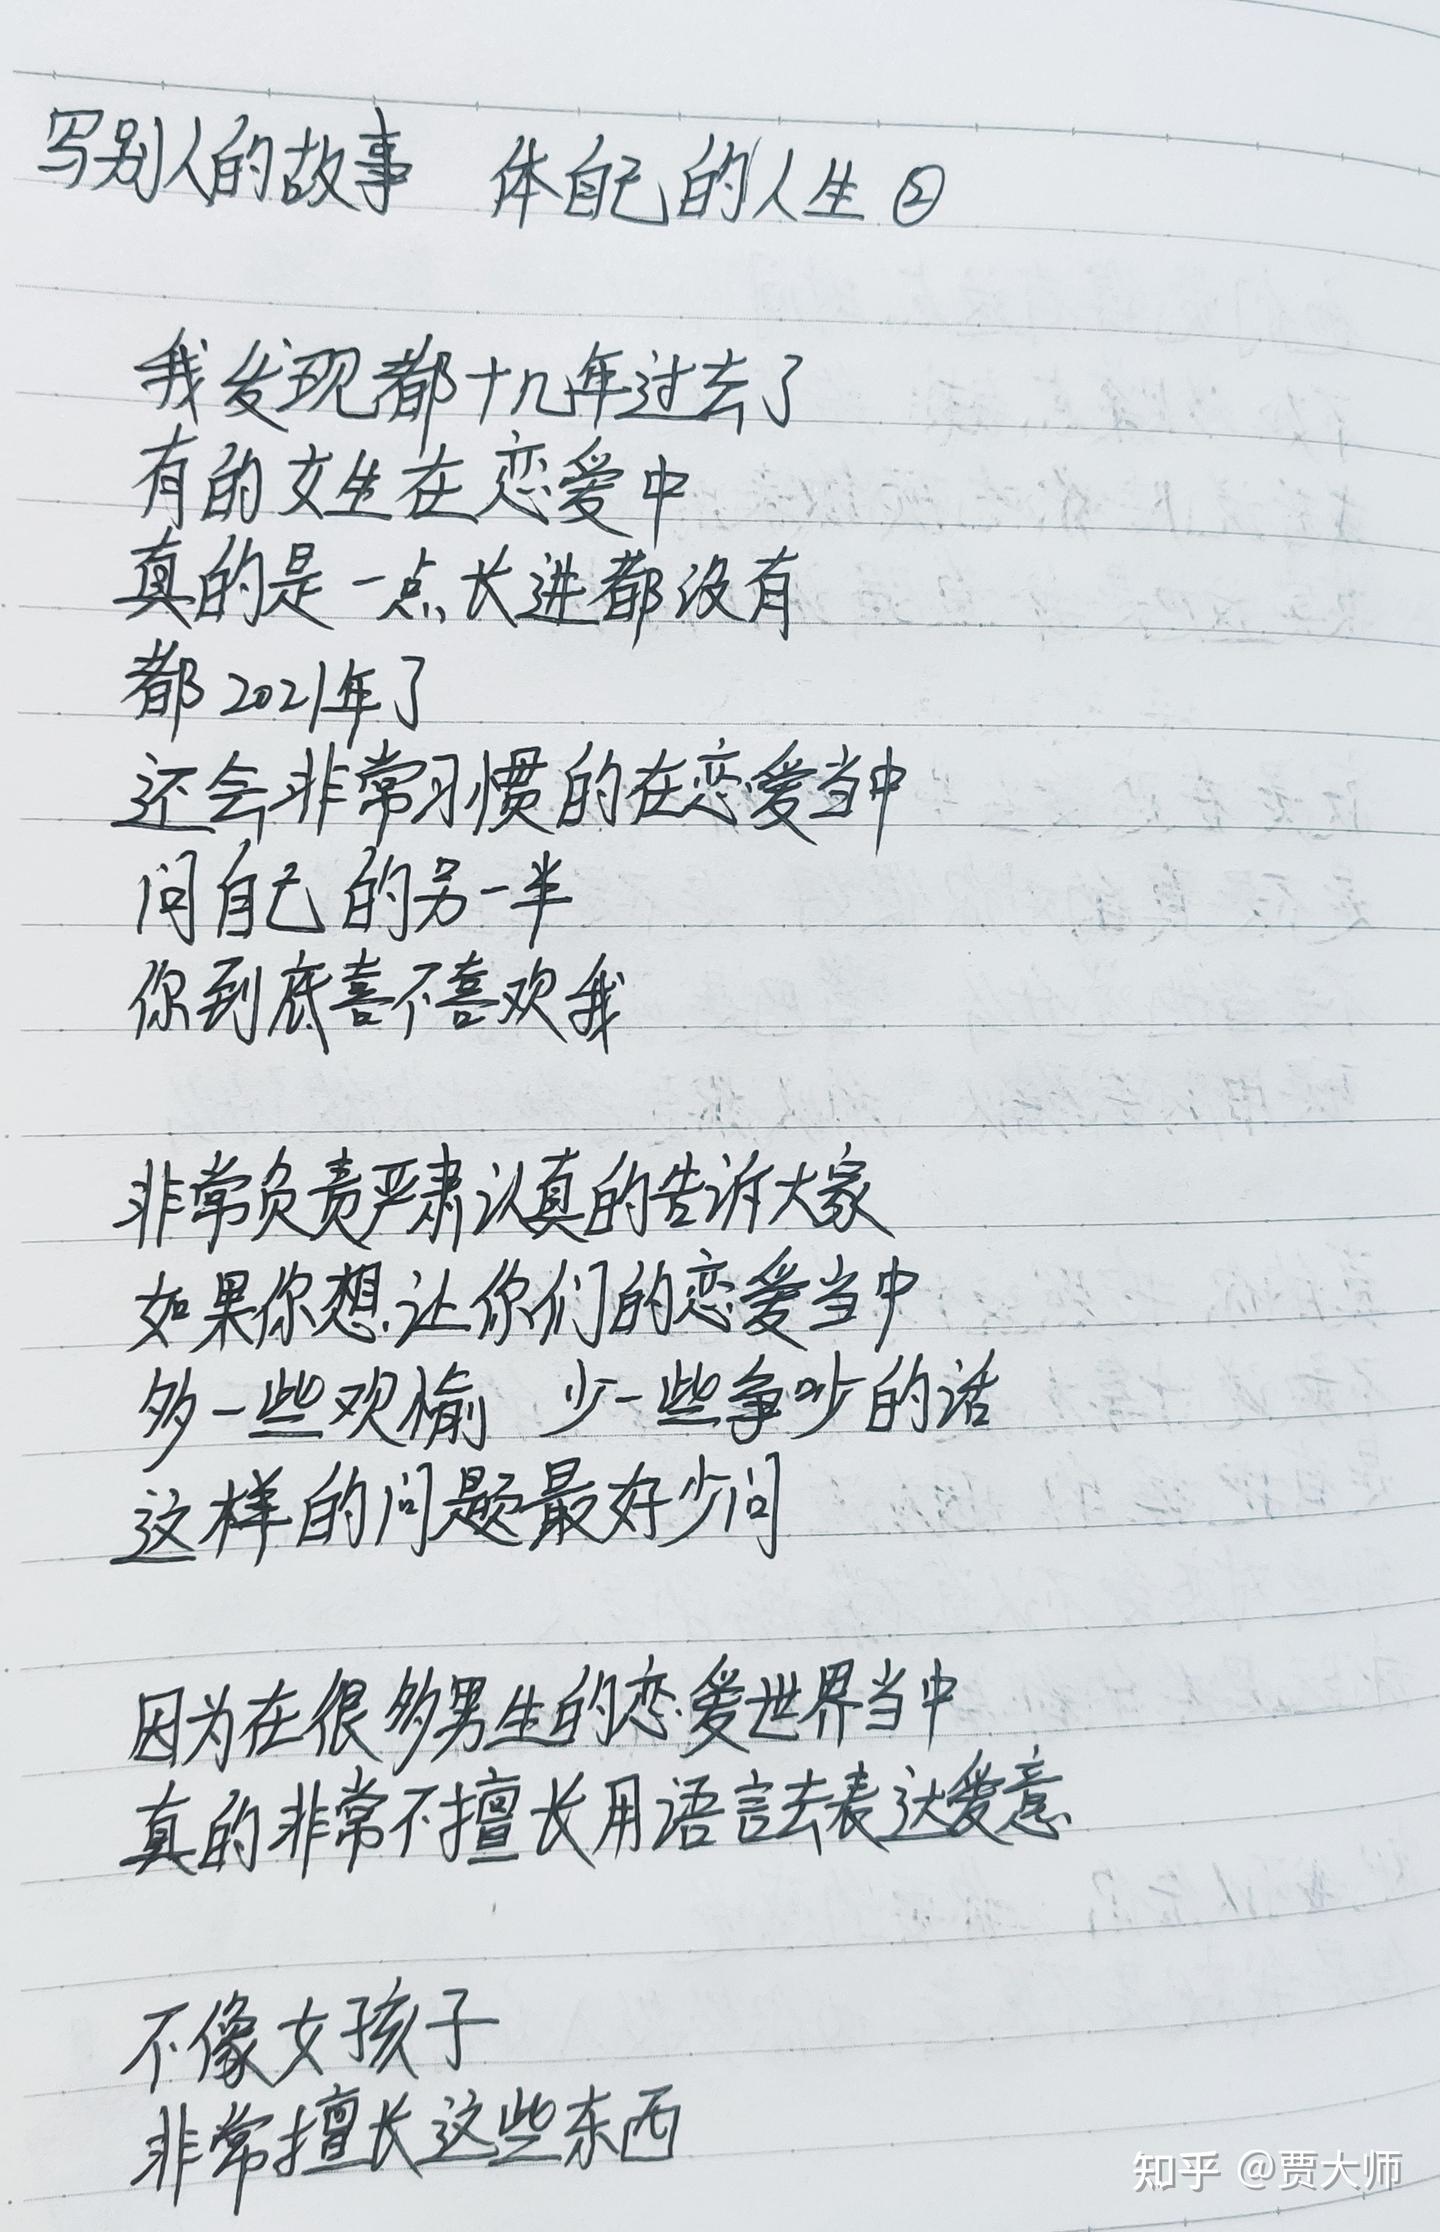 写别人的故事 体自己的人生②
我发现都十几年过去了
有的女生在恋爱中
真的是一点长进都没有
都2021年了
还会非常习惯的在恋爱当中
问自己的另一半
你到底喜不喜欢我
非常负责严肃认真的告诉大家
如果你想让你们的恋爱当中
多一些欢愉 少一些争吵的话
这样的问题最好少问
因为在很多男生的恋爱世界当中
真的非常不擅长用语言去表达爱意
不像女孩子
非常擅长这些东西
知乎 @贾大师